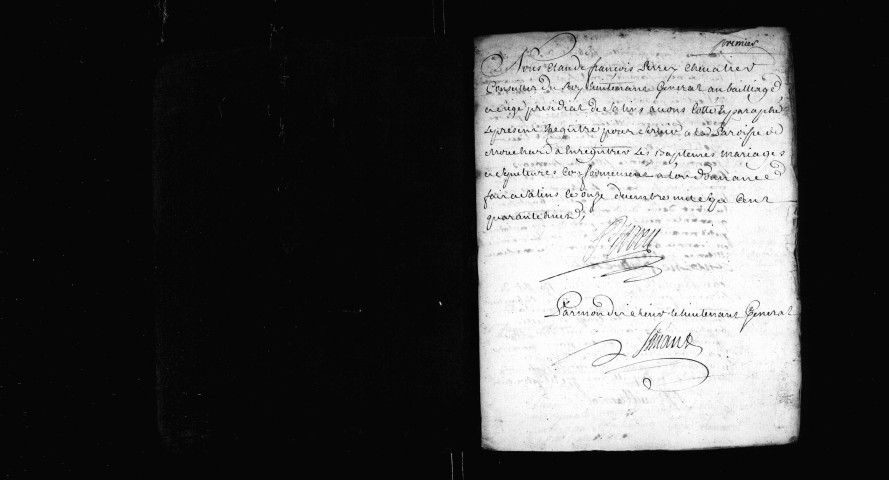 premier
Nous Claude françois Perrey Chevalier
Conseiller du Roy Lieutenant General au bailliage
et siege presidial de Salins avons cotté et paraphé
le present Registre pour servir a la Paroisse de
Mouchard a Enregistrer les Baptemes mariages
et sepultures conformement a l'ordonnance
fait a Salins le onze decembre mil sept cent
quarante huit
Par mondit sieur le Lieutenant General